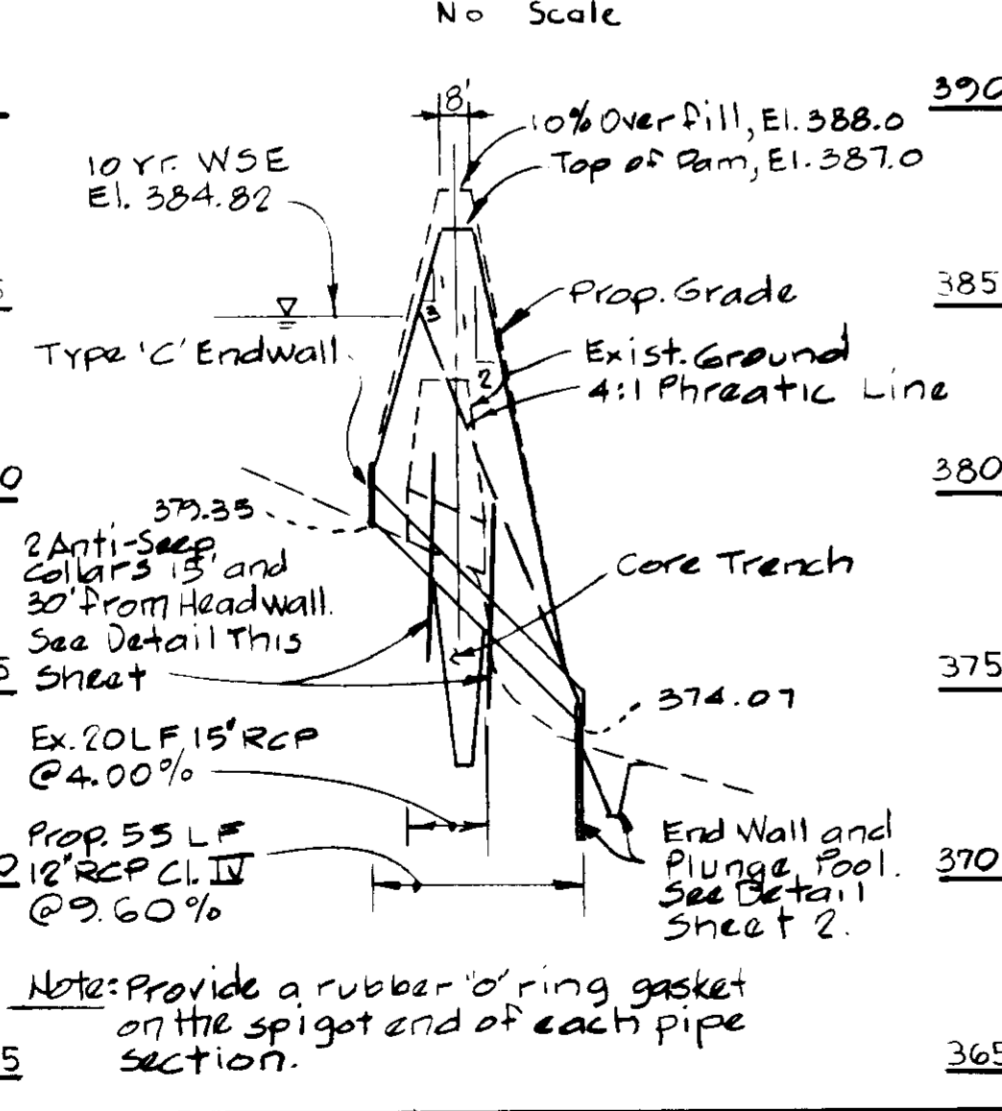 No Scale
390
8'
10% Overfill, El. 388.0
Top of Dam, El. 387.0
10 Yr. WSE
El. 384.82
385
Prop. Grade
3
1
1
2
Type 'C' Endwall
Exist. Ground
4:1 Phreatic Line
0
380
379.35
2 Anti-Seep
Collars 15' and
30' from Headwall.
See Detail This
Sheet
Core Trench
5
375
374.07
Ex. 20 LF 15" RCP
@ 4.00%
Prop. 55 LF
12" RCP Cl. IV
@ 9.60%
0
End Wall and
Plunge Pool.
See Detail
Sheet 2.
370
Note: Provide a rubber "o" ring gasket
on the spigot end of each pipe
section.
5
365